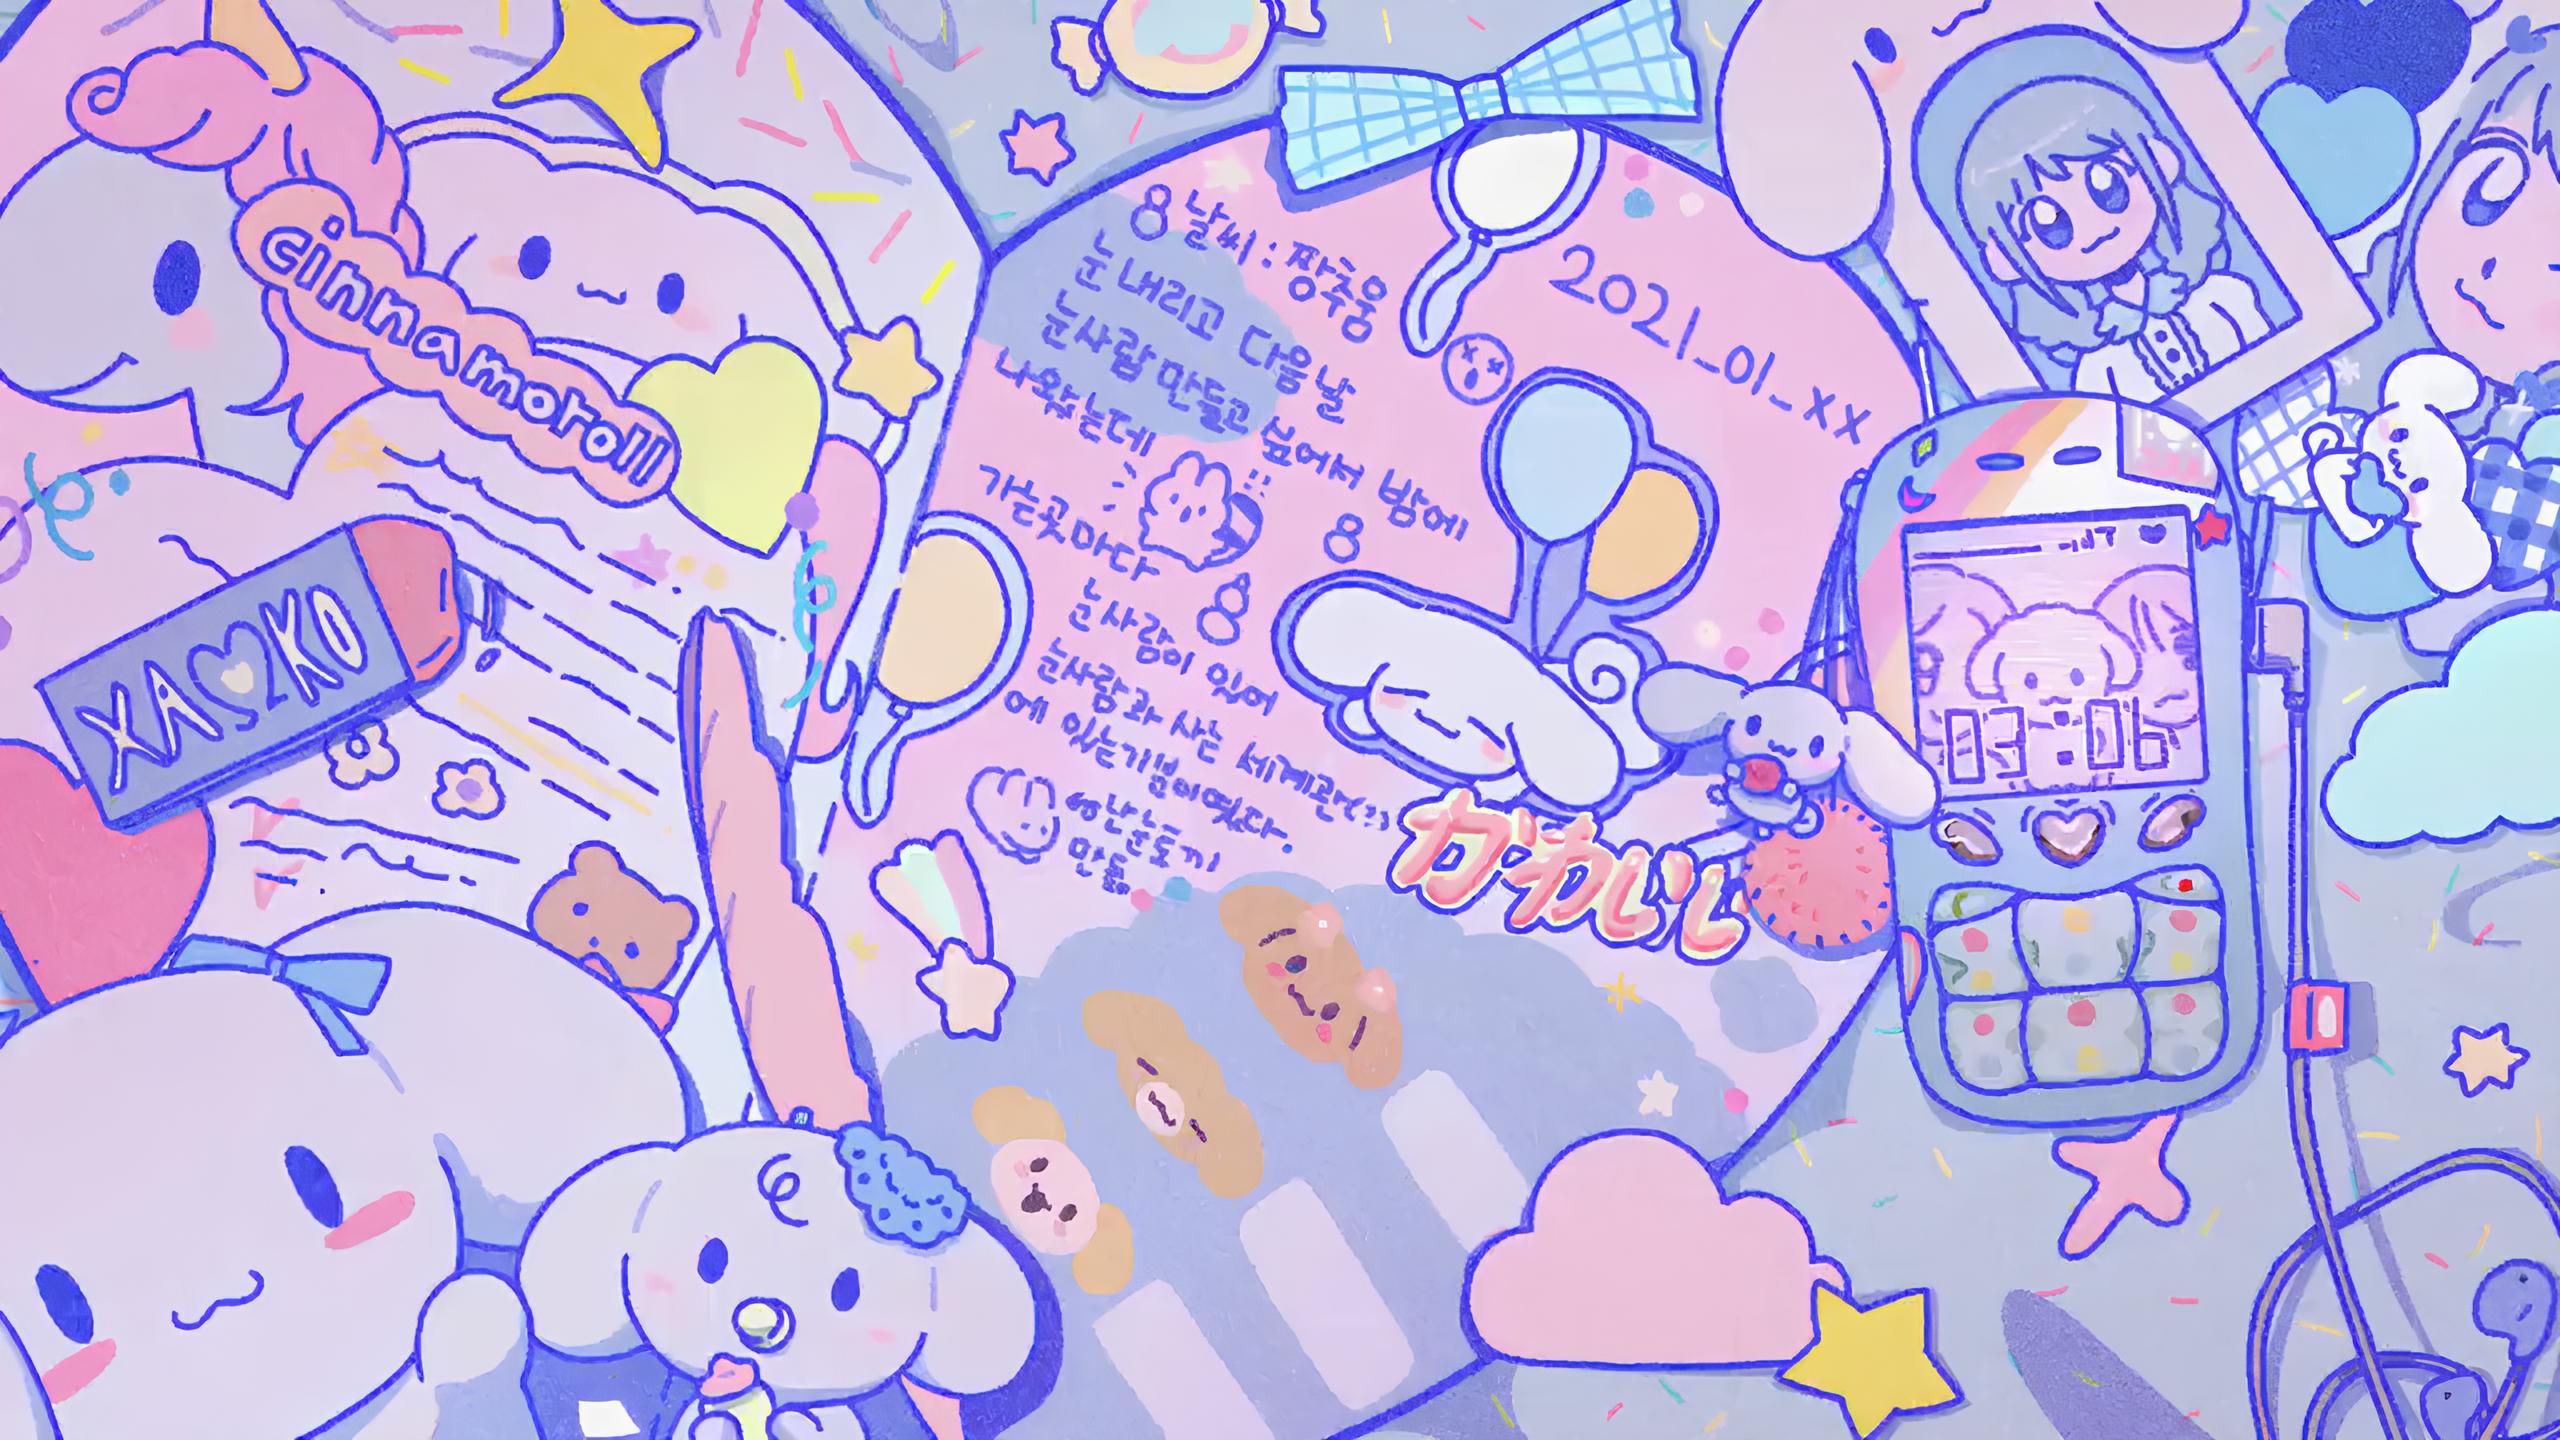 cinnamoroll
XA KO
8 날씨 : 짱추웅
눈 내리고 다음 날
눈사람 만들고 싶어서 밤에
나왔는데
8
가는곳마다
8
눈사람이 있어
눈사람과 사는 세계관(?)
에 있는 기분이였다.
만듦
2021_01_XX
かわいい
03:06